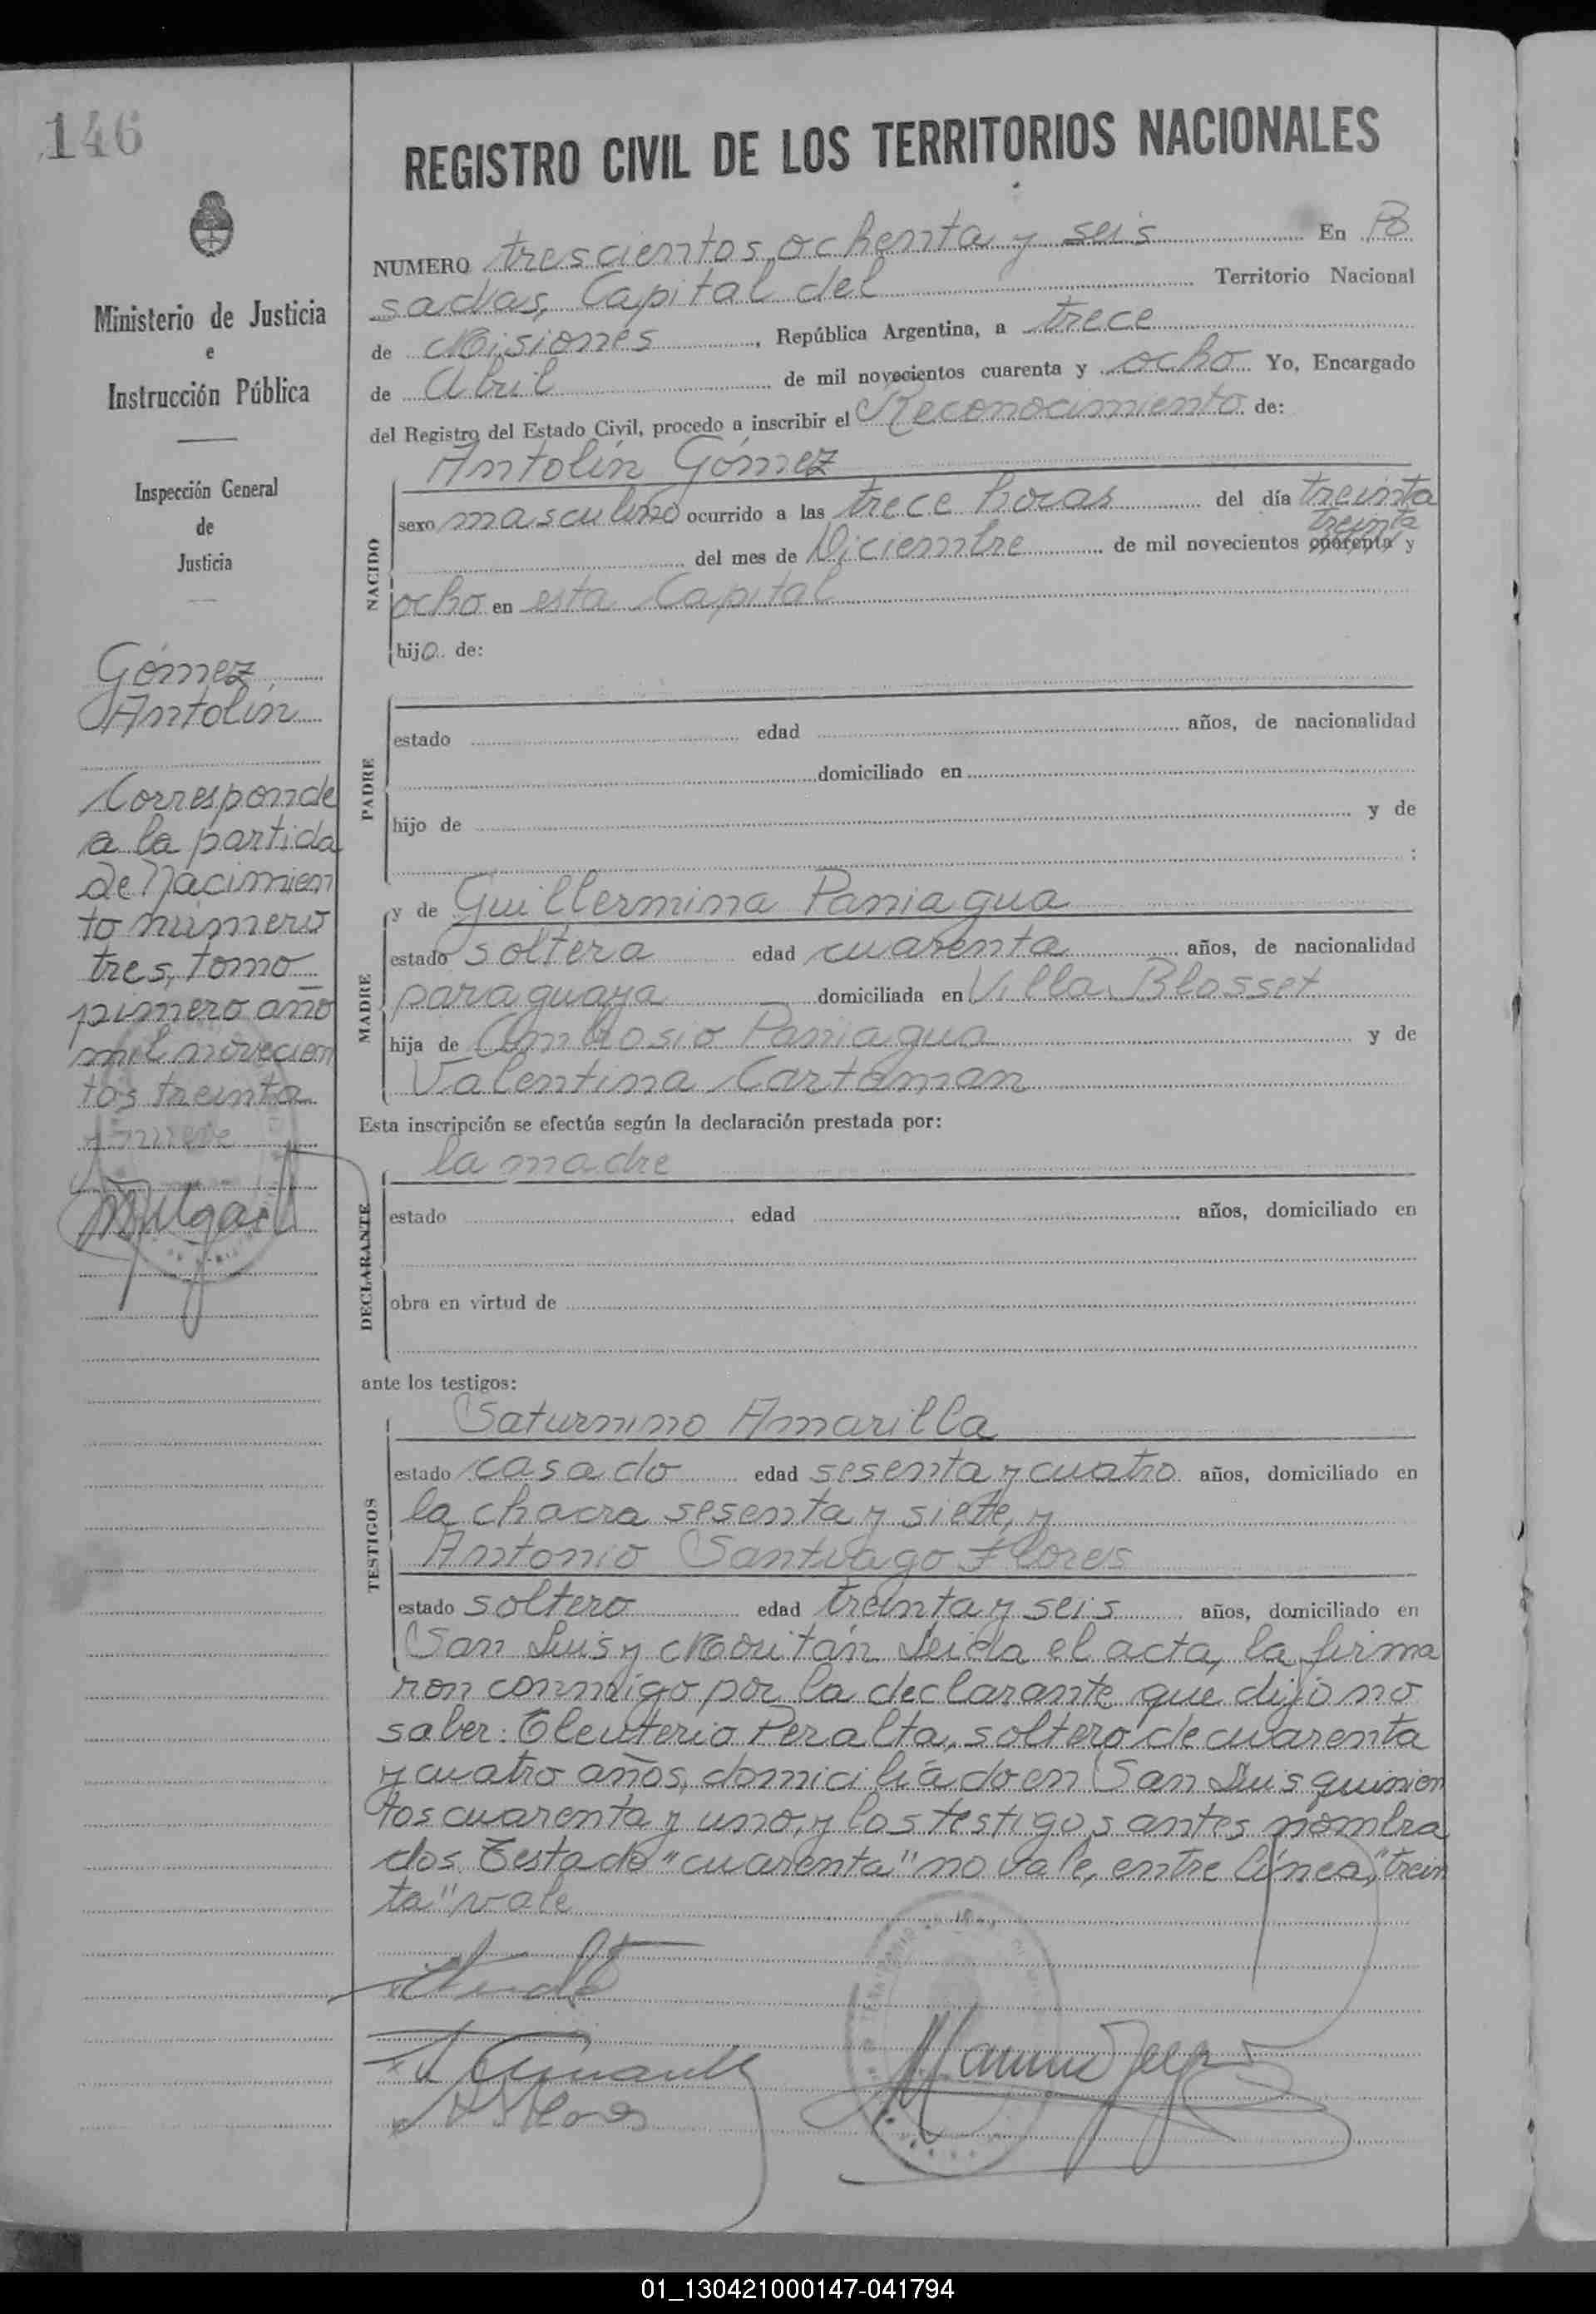 146
Ministerio de Justicia
e
Instrucción Pública
Inspección General
de
Justicia
Gómez
Antolín
Corresponde
a la partida
de Nacimien
to número
tres, tomo
primero año
mil novecien
tos treinta
y nueve
REGISTRO CIVIL DE LOS TERRITORIOS NACIONALES
NUMERO trescientos ochenta y seis En Po
sadas, Capital del Territorio Nacional
de Misiones, República Argentina, a trece
de Abril de mil novecientos cuarenta y ocho Yo, Encargado
del Registro del Estado Civil, procedo a inscribir el Reconocimiento de:
Antolín Gómez
NACIDO
sexo masculino ocurrido a las trece horas del día treinta
treinta
del mes de Diciembre de mil novecientos cuarenta y
ocho en esta Capital
hijo de:
PADRE
estado edad años, de nacionalidad
domiciliado en
hijo de y de
:
MADRE
y de Guillermina Paniagua
estado soltera edad cuarenta años, de nacionalidad
paraguaya domiciliada en Villa Blosset
hija de Ambrosio Paniagua y de
Valentina Cartaman
Esta inscripción se efectúa según la declaración prestada por:
la madre
DECLARANTE
estado edad años, domiciliado en
obra en virtud de
ante los testigos:
TESTIGOS
Saturnino Amarilla
estado casado edad sesenta y cuatro años, domiciliado en
la chacra sesenta y siete, y
Antonio Santiago Flores
estado soltero edad treinta y seis años, domiciliado en
San Luis y Moritán Leida el acta, la firma
ron conmigo por la declarante que dijo no
saber: Eleuterio Peralta, soltero de cuarenta
y cuatro años, domiciliado en San Luis quinien
tos cuarenta y uno, y los testigos antes nombra
dos Testado "cuarenta" no vale, entre línea, "trein
ta" vale
01_130421000147-041794